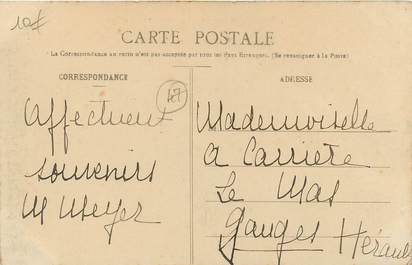 10f
CARTE POSTALE
La Correspondance au recto n'est pas acceptée par tous les Pays Étrangers. (Se renseigner à la Poste)
CORRESPONDANCE
ADRESSE
47
Affectueux
souvenirs
M Meyer
Mademoiselle
A Carrière
Le Mas
Ganges Hérault